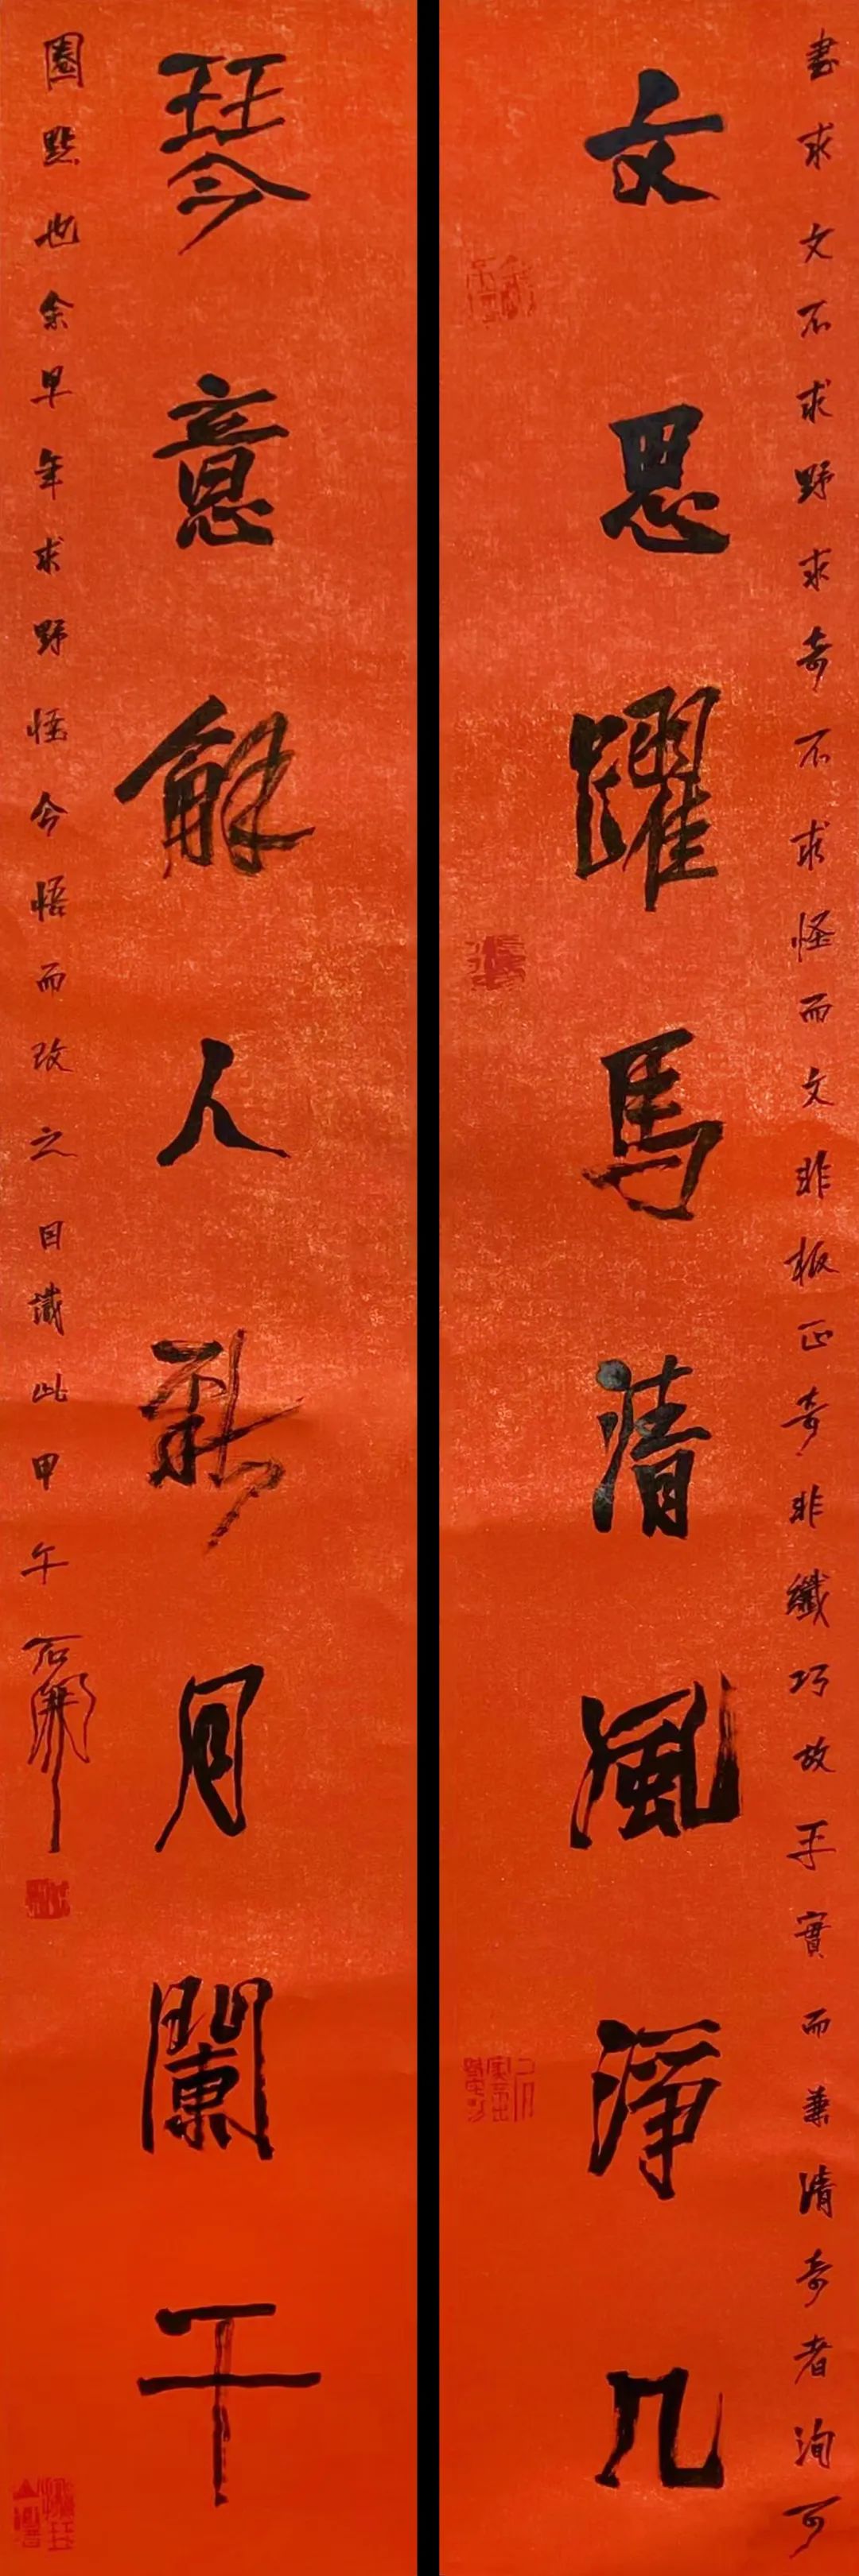 書求文不求野求奇不求怪而文非板正奇非纖巧故平實而兼清奇者洵可
文思躍馬清風淨几
琴意龢人新月闌干
圈點也余早年求野怪今悟而改之因識此甲午石開